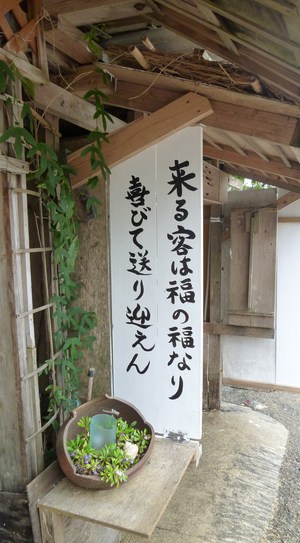 来る客は福の福なり
喜びて送り迎えん